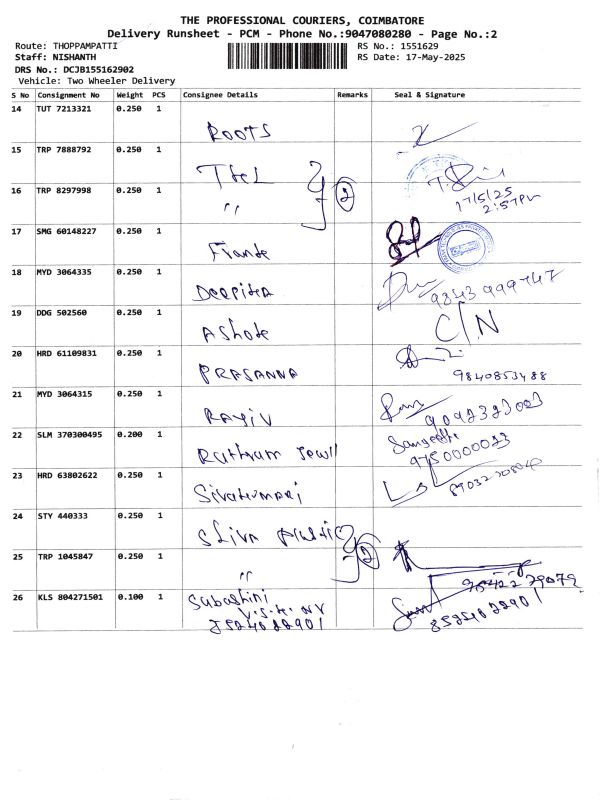 THE PROFESSIONAL COURIERS, COIMBATORE
Delivery Runsheet - PCM - Phone No.:9047080280 - Page No.:2
Route: THOPPAMPATTI RS No.: 1551629
Staff: NISHANTH RS Date: 17-May-2025
DRS No.: DCJB155162902
Vehicle: Two Wheeler Delivery
S No Consignment No Weight PCS Consignee Details Remarks Seal & Signature
14 TUT 7213321 0.250 1
ROOTS
15 TRP 7888792 0.250 1
16 TRP 8297998 0.250 1
" 2 17/5/25
2:57PM
17 SMG 60148227 0.250 1
18 MYD 3064335 0.250 1
Deepika 9843999747
19 DDG 502560 0.250 1
Ashok C/N
20 HRD 61109831 0.250 1
PRASANNA 9840853488
21 MYD 3064315 0.250 1
RAJIV
22 SLM 370300495 0.200 1 Sangeetha
9750000023
23 HRD 63802622 0.250 1
24 STY 440333 0.250 1
25 TRP 1045847 0.250 1 2
"
26 KLS 804271501 0.100 1 Subashini